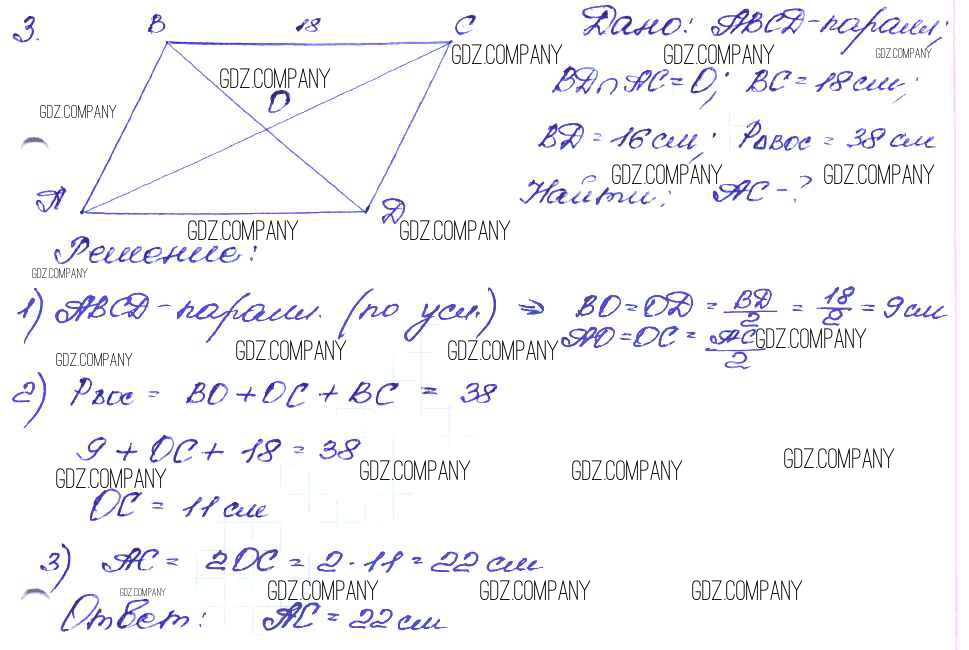 3.
B 18 C
O
A D
Дано: ABCD-паралл;
BD∩AC=O; BC=18см;
BD=16см; P△BOC=38см
Найти: AC-?
Решение:
1) ABCD-паралл. (по усл.) ⇒ BO=OD=BD/2=18/2=9см
AO=OC=AC/2
2) PBOC= BO+OC+BC = 38
9+OC+18=38
OC=11см
3) AC= 2OC=2·11=22см
Ответ: AC=22см
GDZ.COMPANY GDZ.COMPANY GDZ.COMPANY
GDZ.COMPANY
GDZ.COMPANY
GDZ.COMPANY GDZ.COMPANY
GDZ.COMPANY GDZ.COMPANY
GDZ.COMPANY
GDZ.COMPANY
GDZ.COMPANY GDZ.COMPANY GDZ.COMPANY
GDZ.COMPANY GDZ.COMPANY GDZ.COMPANY GDZ.COMPANY
GDZ.COMPANY GDZ.COMPANY GDZ.COMPANY GDZ.COMPANY